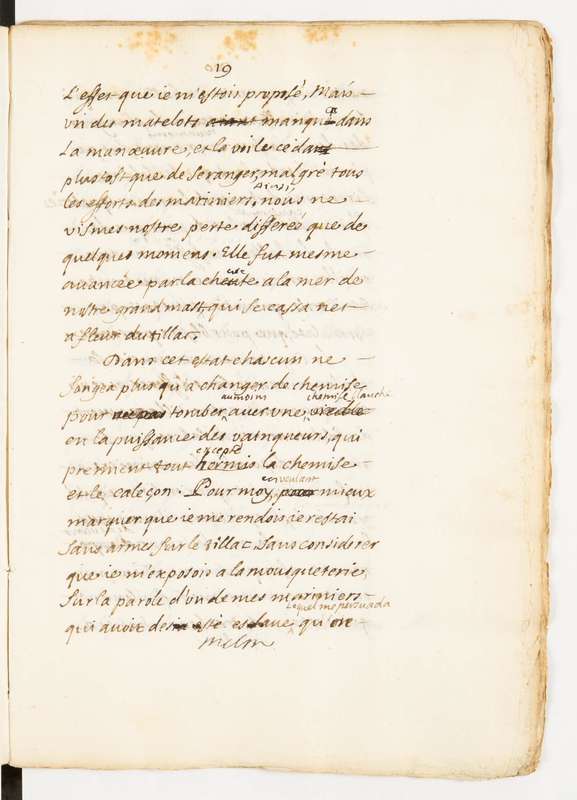 19
L'effet que ie m'estois proposé, Mais
vn des matelots aiant manqué dans
La manœuure, et la voile cedant
plustost que de se ranger, malgré tous
les efforts des mariniers, Ainsi nous ne
vismes nostre perte differeé que de
quelques momens. Elle fut mesme
auancée par la cheute a la mer de
nostre grand mast qui se cassa net
a fleur du tillac.
Dans cet estat chascun ne
songea plus qu'a changer de chemise
aumoins chemise blanche
pour ne pas tomber, auec vne vieille
en la puissance des vainqueurs, qui
excepté
prennent tout hormis la chemise
et le caleçon. Pour moy, voulant pour mieux
marquer que ie me rendois ie restai
sans armes sur le tillac, sans considerer
que ie m'exposois a la mousqueterie,
sur la parole d'vn de mes mariniers
Lequel me persuada
qui auoit desia esté esclaue qu'on